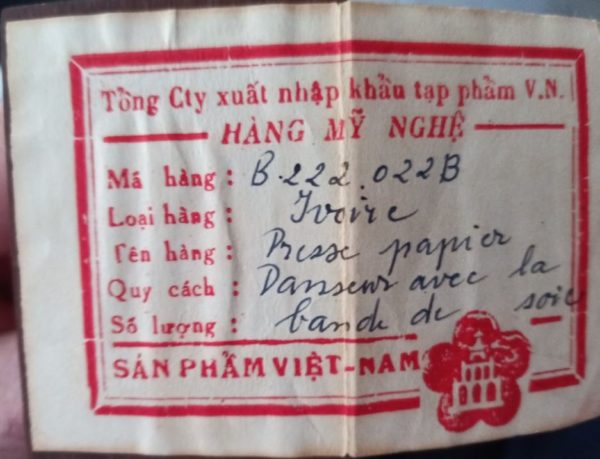 Tổng Cty xuất nhập khẩu tạp phẩm V.N.
HÀNG MỸ NGHỆ
Mã hàng : B.222.022B
Loại hàng : Ivoire
Tên hàng : Presse papier
Quy cách : Danseur avec la
Số lượng : bande de soie
SẢN PHẨM VIỆT-NAM